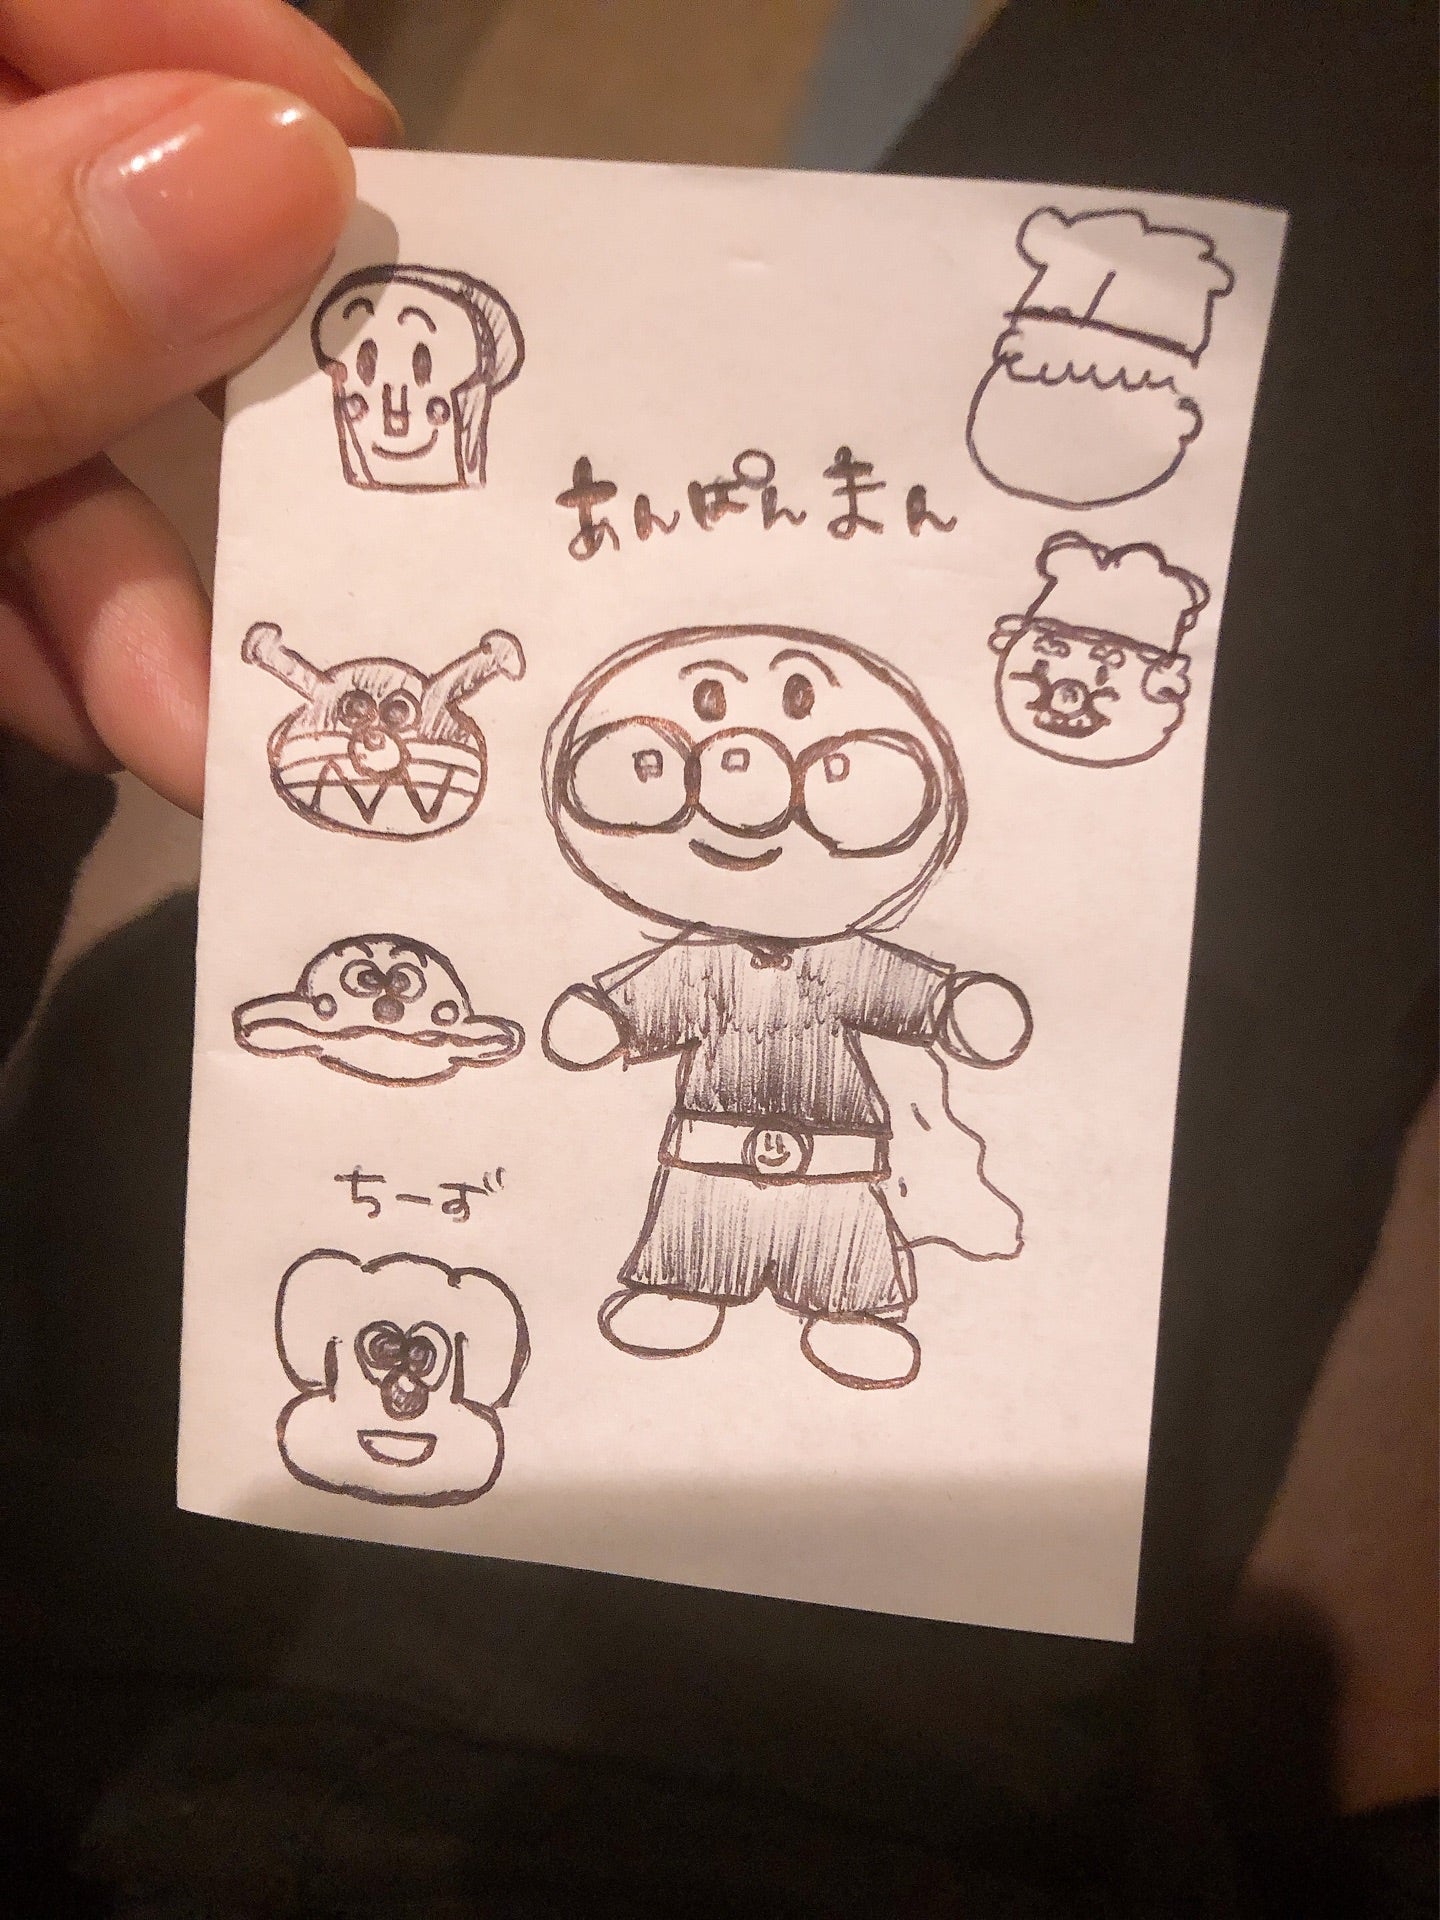 あんぱんまん
ちーず